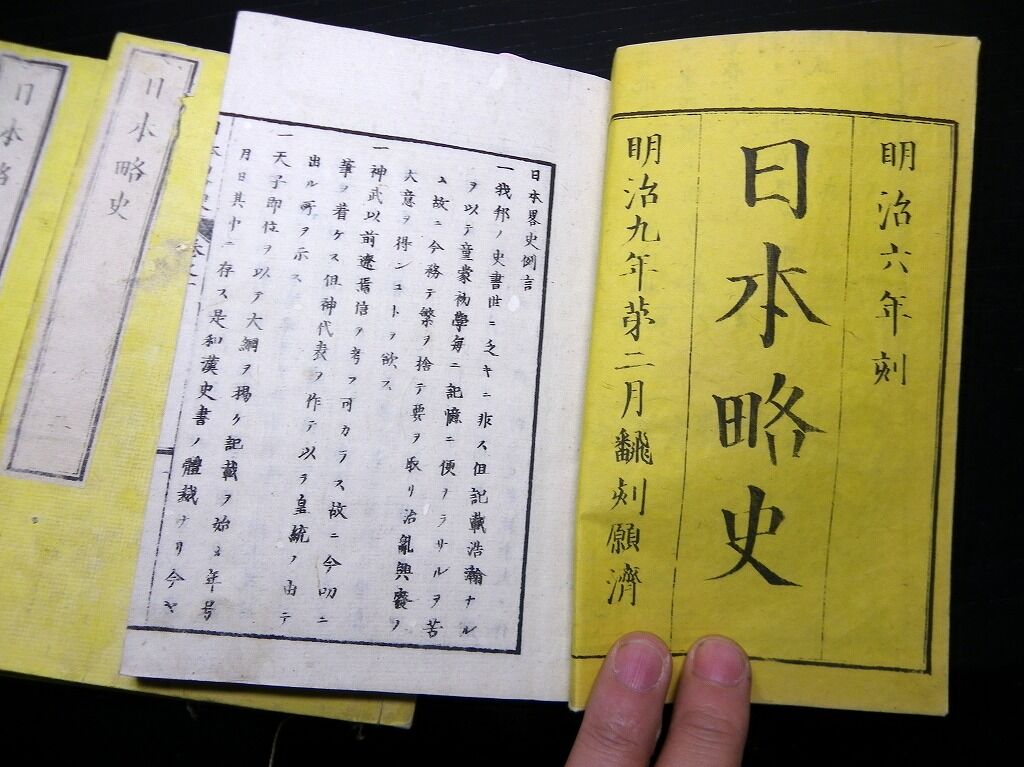 明治六年刻
日本略史
明治九年第二月翻刻願濟
日本畧史例言
一我邦ノ史書世ニ乏キニ非ス但記載浩瀚ナル
ヲ以テ童蒙初學毎ニ記憶ニ便ナラサルヲ苦
ム故ニ今務テ繁ヲ捨テ要ヲ取リ治亂興廢ノ
大意ヲ得ンコトヲ欲ス
一神武以前遼焉信ヲ考フ可カラス故ニ今切ニ
筆ヲ着ケス但神代表ヲ作テ以テ皇統ノ由テ
出ル所ヲ示ス
一天子即位ヲ以テ大綱ヲ揭ケ記載ヲ始ム年号
月日其中ニ存ス是和漢史書ノ體裁ナリ今ヤ
日本略史
日本略